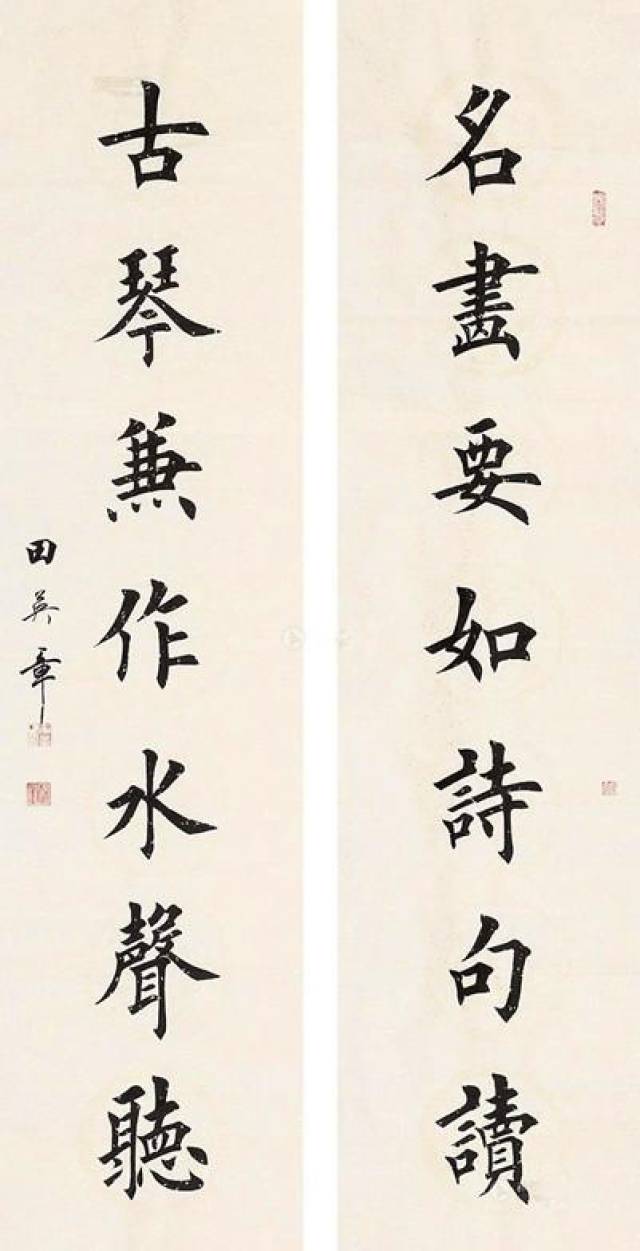 名畫要如詩句讀
古琴兼作水聲聽
田英章